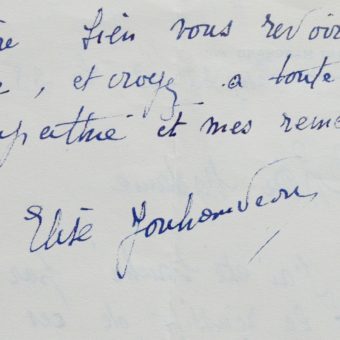 re bien vous revoir
, et croyez a toute
mpathie et mes reme
Elise Jouhandeau